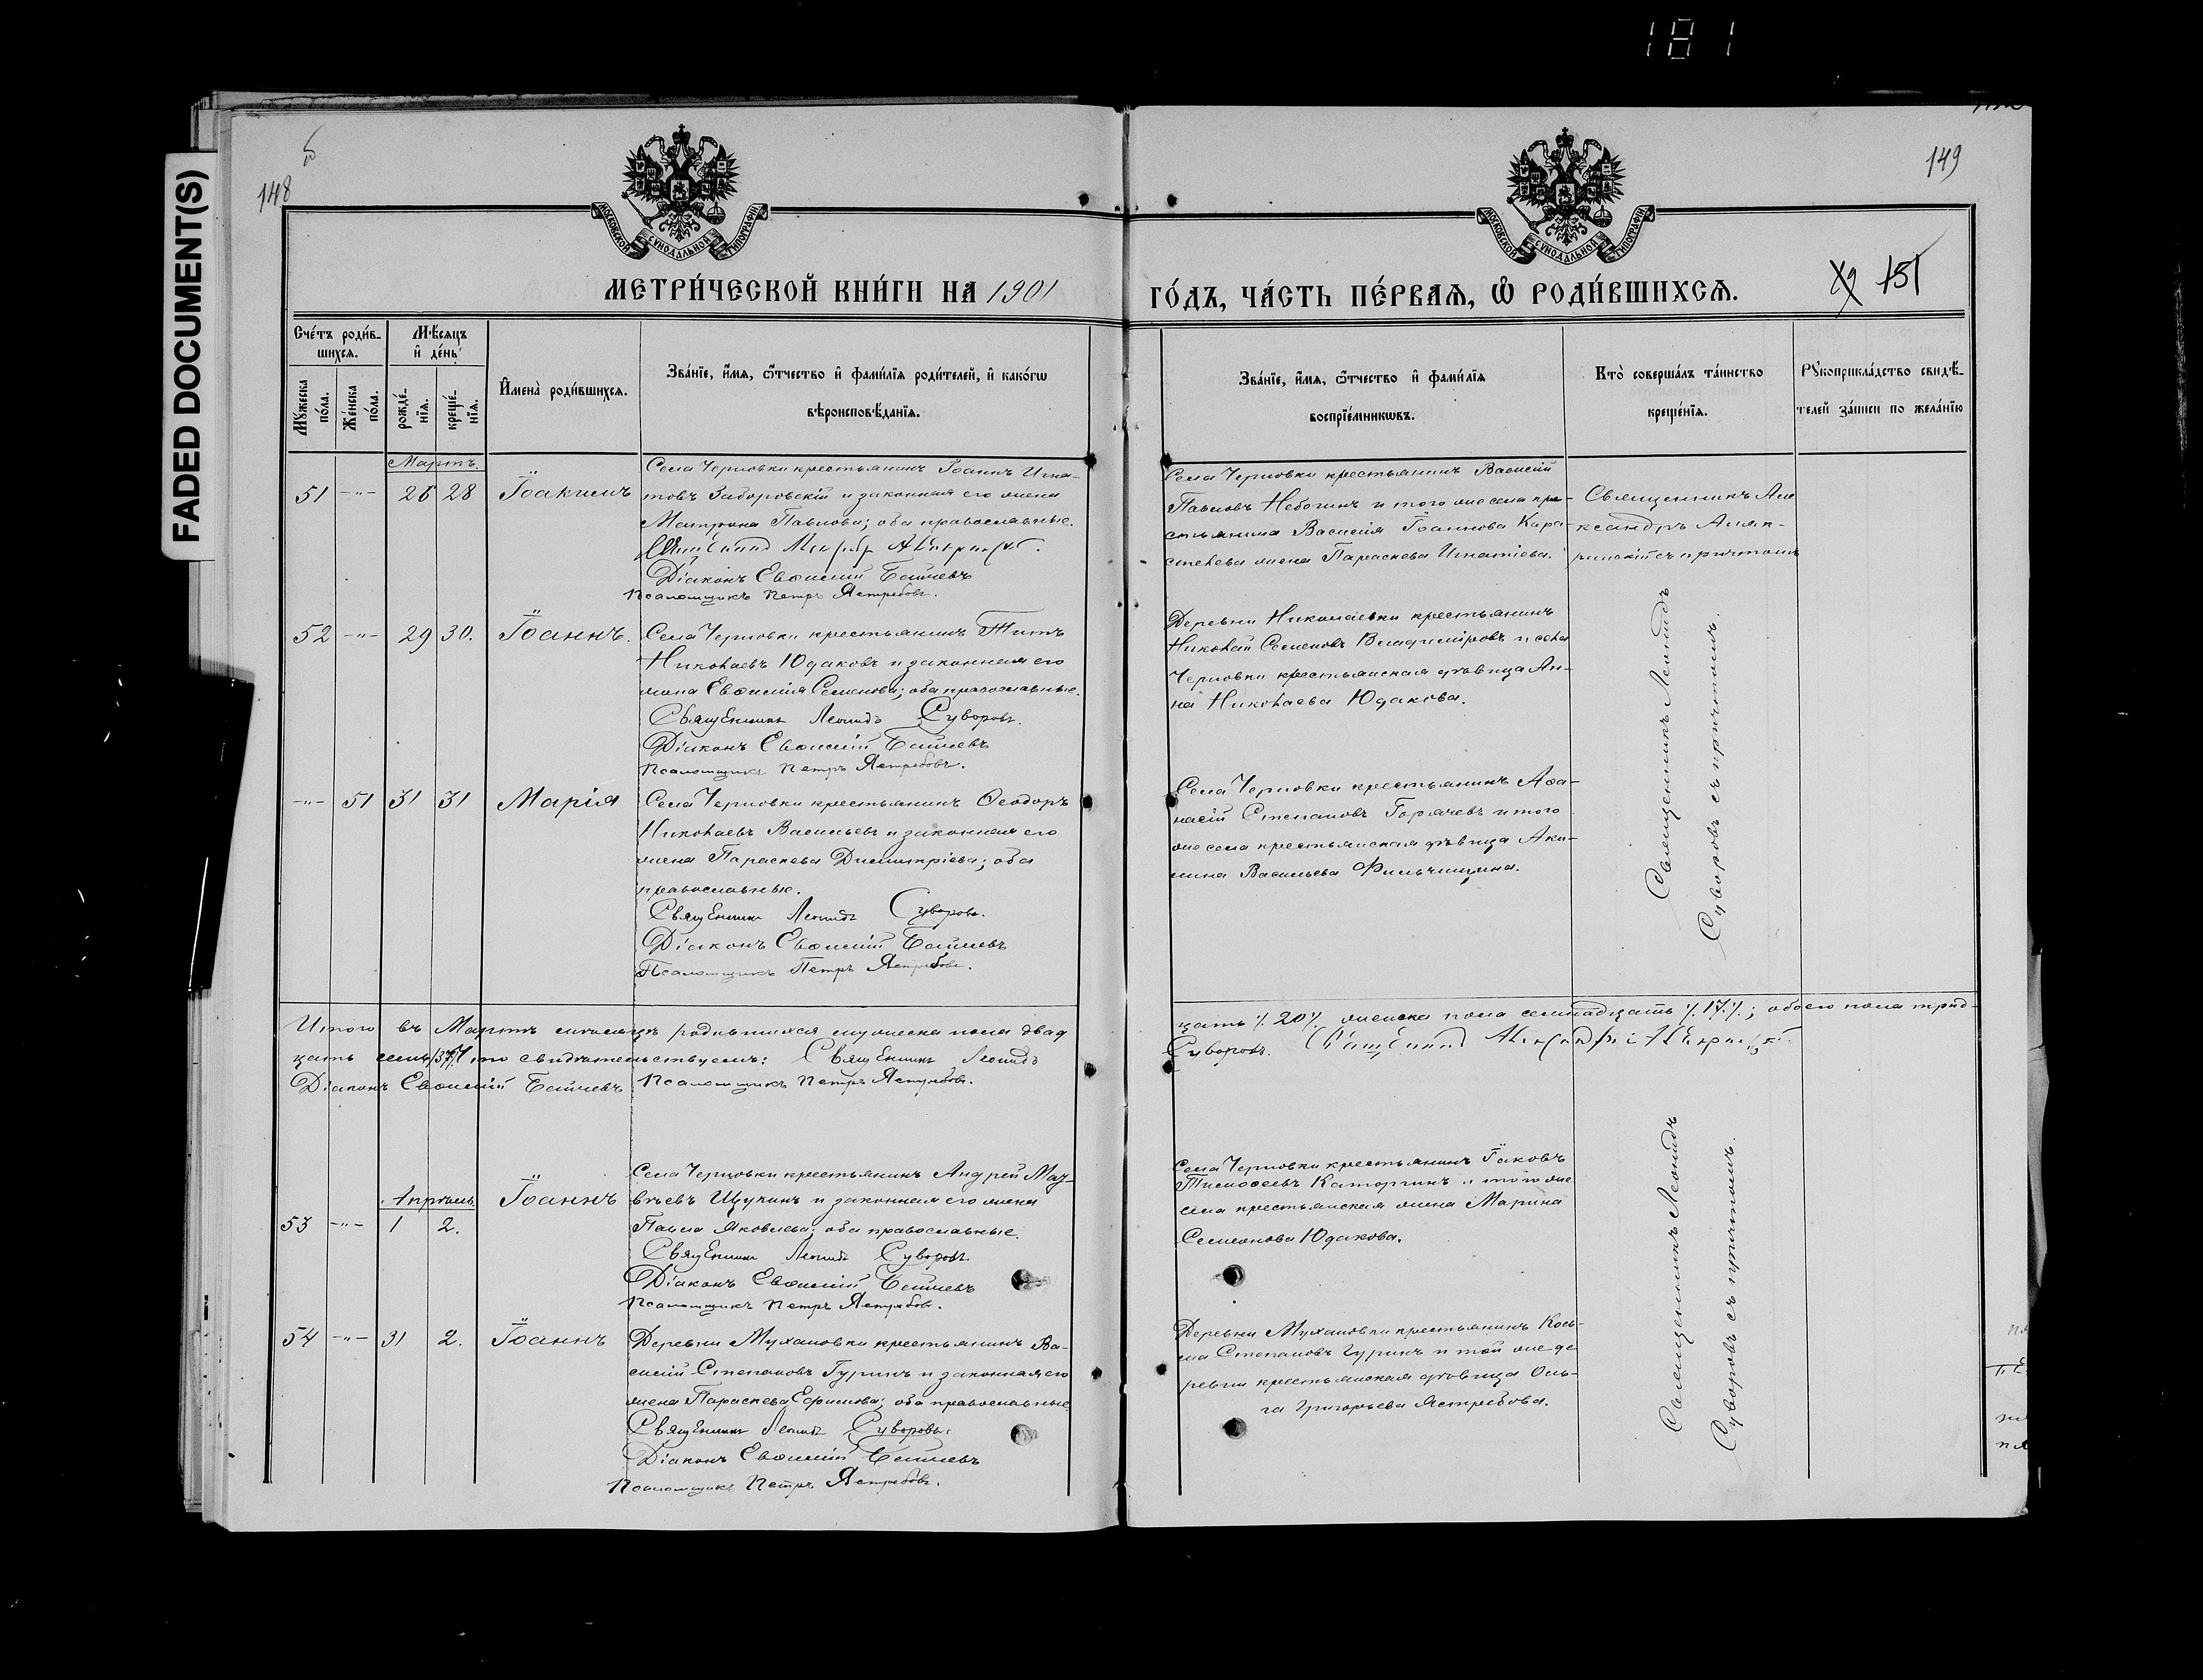 181
FADED DOCUMENT(S)
148
149
МОСКОВСКОЙ СУНОДАЛЬНОЙ ТИПОГРАФІИ
МОСКОВСКОЙ СУНОДАЛЬНОЙ ТИПОГРАФІИ
151
МЕТРИ́ЧЕСКОЙ КНИ́ГИ НА 1901
ГО́ДЪ, ЧА́СТЬ ПЕ́РВАѦ, Ѽ РОДИ́ВШИХСѦ.
Сче́тъ роди́в-
шихсѧ.
Мѣ́сѧцъ
и҆ де́нь
Мꙋ́жеска
по́ла.
Же́нска
по́ла.
рожде́-
нїѧ.
креще́-
нїѧ.
И҆мена̀ роди́вшихсѧ.
Зва́нїе, и҆́мѧ, ѻ҆́тчество и҆ фами́лїѧ роди́телей, и҆ како́гѡ
вѣроисповѣ́данїѧ.
Зва́нїе, и҆́мѧ, ѻ҆́тчество и҆ фами́лїѧ
воспрїе́мникѡвъ.
Кто̀ соверша́лъ та́инство
креще́нїѧ.
Рꙋкоприкла́дство свидѣ́-
телей за́писи по жела́нїю
Мартъ.
51 -"- 26 28 Іоакимъ
Села Черновки крестьянинъ Іоаннъ Игна-
товъ Заборовскій и законная его жена
Матрона Павлова; оба православные.
Діаконъ Евѳимій
Псаломщикъ Петръ Ястребовъ.
Села Черновки крестьянинъ Василій
Павловъ Небогинъ и того же села кре-
стьянина Василія Іоаннова Кара-
стелева жена Параскева Игнатіева.
Священникъ Але
ксандръ
съ причтомъ
52 -"- 29 30. Іоаннъ.
Села Черновки крестьянинъ Титъ
Николаевъ Юдаковъ и законная его
жена Евѳимія Семенова; оба православные.
Священникъ Леонидъ Суворовъ.
Діаконъ Евѳимій
Псаломщикъ Петръ Ястребовъ.
Деревни Николаевки крестьянинъ
Николай Семеновъ Владиміровъ и села
Черновки крестьянская дѣвица Ан-
на Николаева Юдакова.
Священникъ Леонидъ
Суворовъ съ причтомъ.
-"- 51 31 31 Марія
Села Черновки крестьянинъ Ѳеодоръ
Николаевъ Васильевъ и законная его
жена Параскева Димитріева; оба
православные.
Священникъ Леонидъ Суворовъ.
Діаконъ Евѳимій
Псаломщикъ Петръ Ястребовъ.
Села Черновки крестьянинъ Аѳа-
насій Степановъ Горячевъ и того
же села крестьянская дѣвица Аки-
лина Васильева Фильчищина.
Итого въ Мартѣ мѣсяцѣ родившихся мужеска пола двад
цать ∕. 20 ∕. женска пола семнадцать ∕. 17 ∕.; обоего пола трид-
цать семь ∕37∕ что свидѣтельствуемъ: Священникъ Леонидъ
Суворовъ.
Діаконъ Евѳимій Псаломщикъ Петръ Ястребовъ.
Апрѣль.
53 -"- 1 2. Іоаннъ
Села Черновки крестьянинъ Андрей Мат-
вѣевъ Щукинъ и законная его жена
Павла Яковлева; оба православные.
Священникъ Леонидъ Суворовъ
Діаконъ Евѳимій
Псаломщикъ Петръ Ястребовъ.
Села Черновки крестьянинъ Іаковъ
Тимоѳеевъ Каторгинъ и того же
села крестьянская жена Марина
Семеонова Юдакова.
Священникъ Леонидъ
Суворовъ съ причтомъ.
54 -"- 31 2. Іоаннъ
Деревни Мухановки крестьянинъ Ва-
силій Степановъ Гуринъ и законная его
жена Параскева Ефимова; оба православные
Священникъ Леонидъ Суворовъ.
Діаконъ Евѳимій
Псаломщикъ Петръ Ястребовъ.
Деревни Мухановки крестьянинъ Кось-
ма Степановъ Гуринъ и той же де
ревни крестьянская дѣвица Оль-
га Григорьева Ястребова.